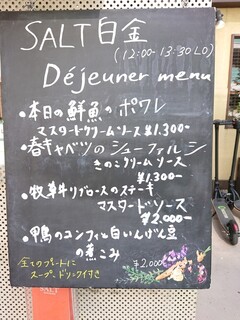 SALT白金
(12:00-13:30LO)
Déjeuner menu
•本日の鮮魚のポワレ
マスタードクリームソース ¥1.300-
•春キャベツのシューファルシ
きのこクリームソース
¥1.300-
•牧草牛リブロースのステーキ
マスタードソース
¥2.000-
•鴨のコンフィと白いんげん豆
の煮こみ
¥2.000
全てのプレートに
スープ、ドリンク付き